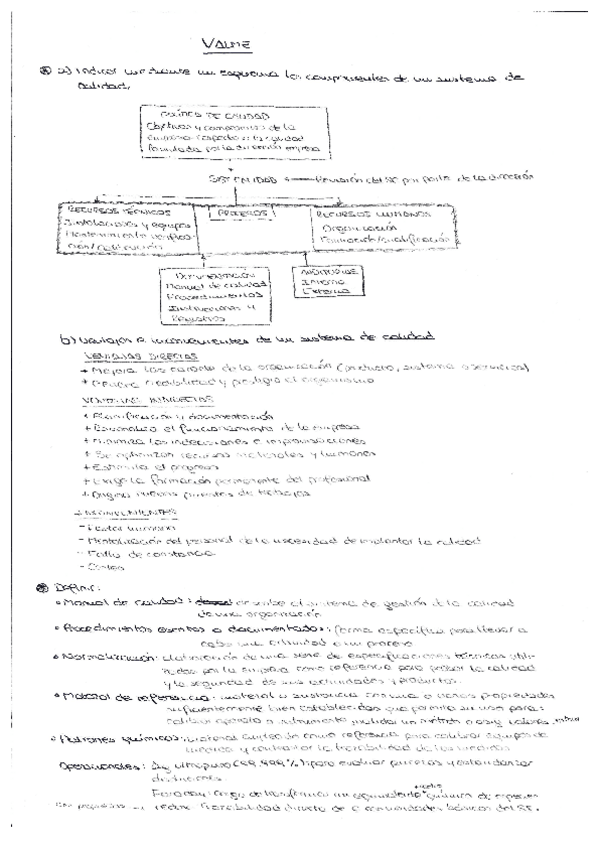 a) Indicar mediante un esquema los componentes de un sistema de
calidad.
POLÍTICA DE CALIDAD
Objetivos y compromisos de la
empresa respecto a la calidad
formulada por la dirección empresa
SIST. CALIDAD Revisión del SC por parte de la dirección
RECURSOS TÉCNICOS
Instalaciones y equipos
Mantenimiento verifica-
ción/calibración
PROCESOS
RECURSOS HUMANOS
Organización
Formación/cualificación
DOCUMENTACIÓN
Manual de calidad
Procedimientos
Instrucciones y
Registros
AUDITORIAS
Interna
Externa
b) Ventajas e inconvenientes de un sistema de calidad
VENTAJAS DIRECTAS
+ Mejora la calidad de la organización (producto, sistema o servicios)
+ Genera credibilidad y prestigio al organismo
VENTAJAS INDIRECTAS
+ Planificación y documentación
+ el funcionamiento de la empresa
+ Minimiza las indecisiones e improvisaciones
+ Se optimizan recursos materiales y humanos
+ Estimula el progreso
+ Exige la formación permanente del profesional
+ Origina nuevos puestos de trabajos
INCONVENIENTES
- Factor humano
- Mentalización del personal de la necesidad de implantar la calidad
- Falta de constancia
- Costes
Definir:
• Manual de calidad: describe el sistema de gestión de la calidad
de una organización.
• Procedimientos escritos o documentados: forma específica para llevar a
cabo una actividad o un proceso
• Normalización: elaboración de una serie de especificaciones técnicas utili-
zadas por la empresa como referencia para probar la calidad
y la seguridad de sus actividades y productos.
• Material de referencia: material o sustancia con una o varias propiedades
suficientemente bien establecidas que permita su uso para:
calibrar aparato o instrumento, validar un método o asig valores
• Patrones químicos: material empleado como referencia para calibrar equipos de
medida y contrastar la trazabilidad de las medidas
Operacionales: Ag ultrapura (99,999%): para evaluar purezas y estandarizar
disoluciones.
Faraday: carga de transferencia un equivalente químico de especies
trazabilidad directa de unidades básicas del SI.